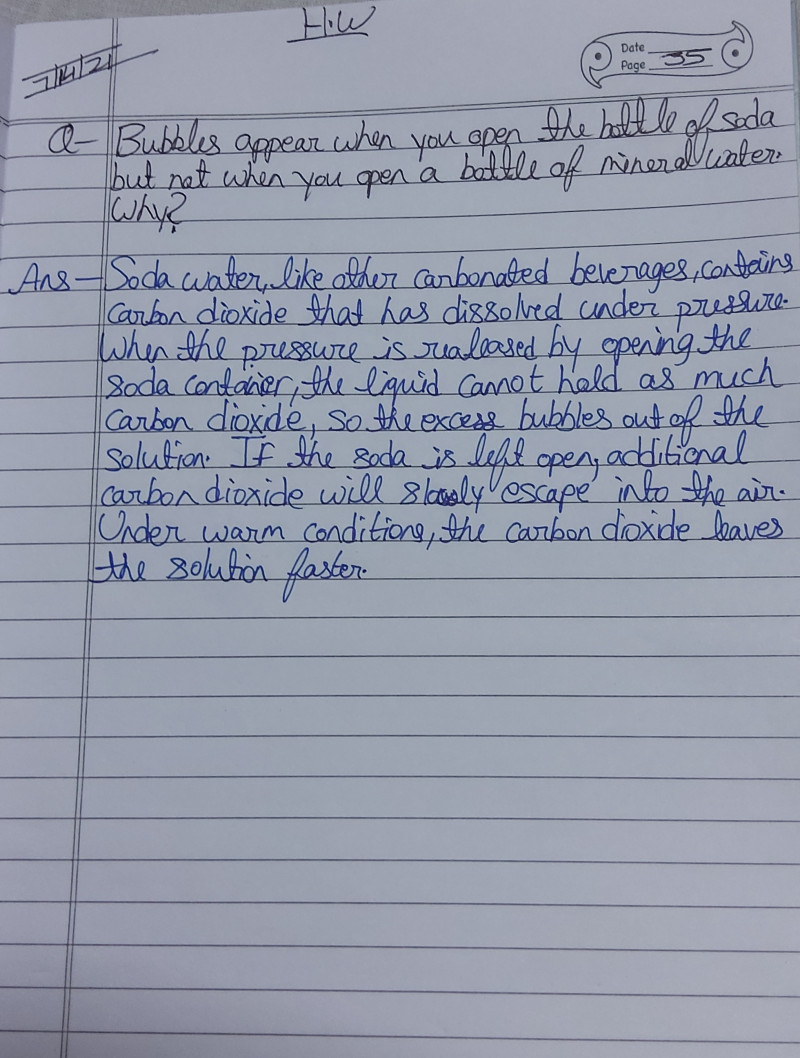 H.W
7/4/21
Date
Page 35
Q- Bubbles appear when you open the bottle of soda
but not when you open a bottle of mineral water.
Why?
Ans- Soda water, like other carbonated beverages, contains
carbon dioxide that has dissolved under pressure.
When the pressure is realeased by opening the
soda contanier, the liquid cannot hold as much
carbon dioxide, so the excess bubbles out of the
solution. If the soda is left open, additional
carbon dioxide will slowly escape into the air.
Under warm conditions, the carbon dioxide leaves
the solution faster.